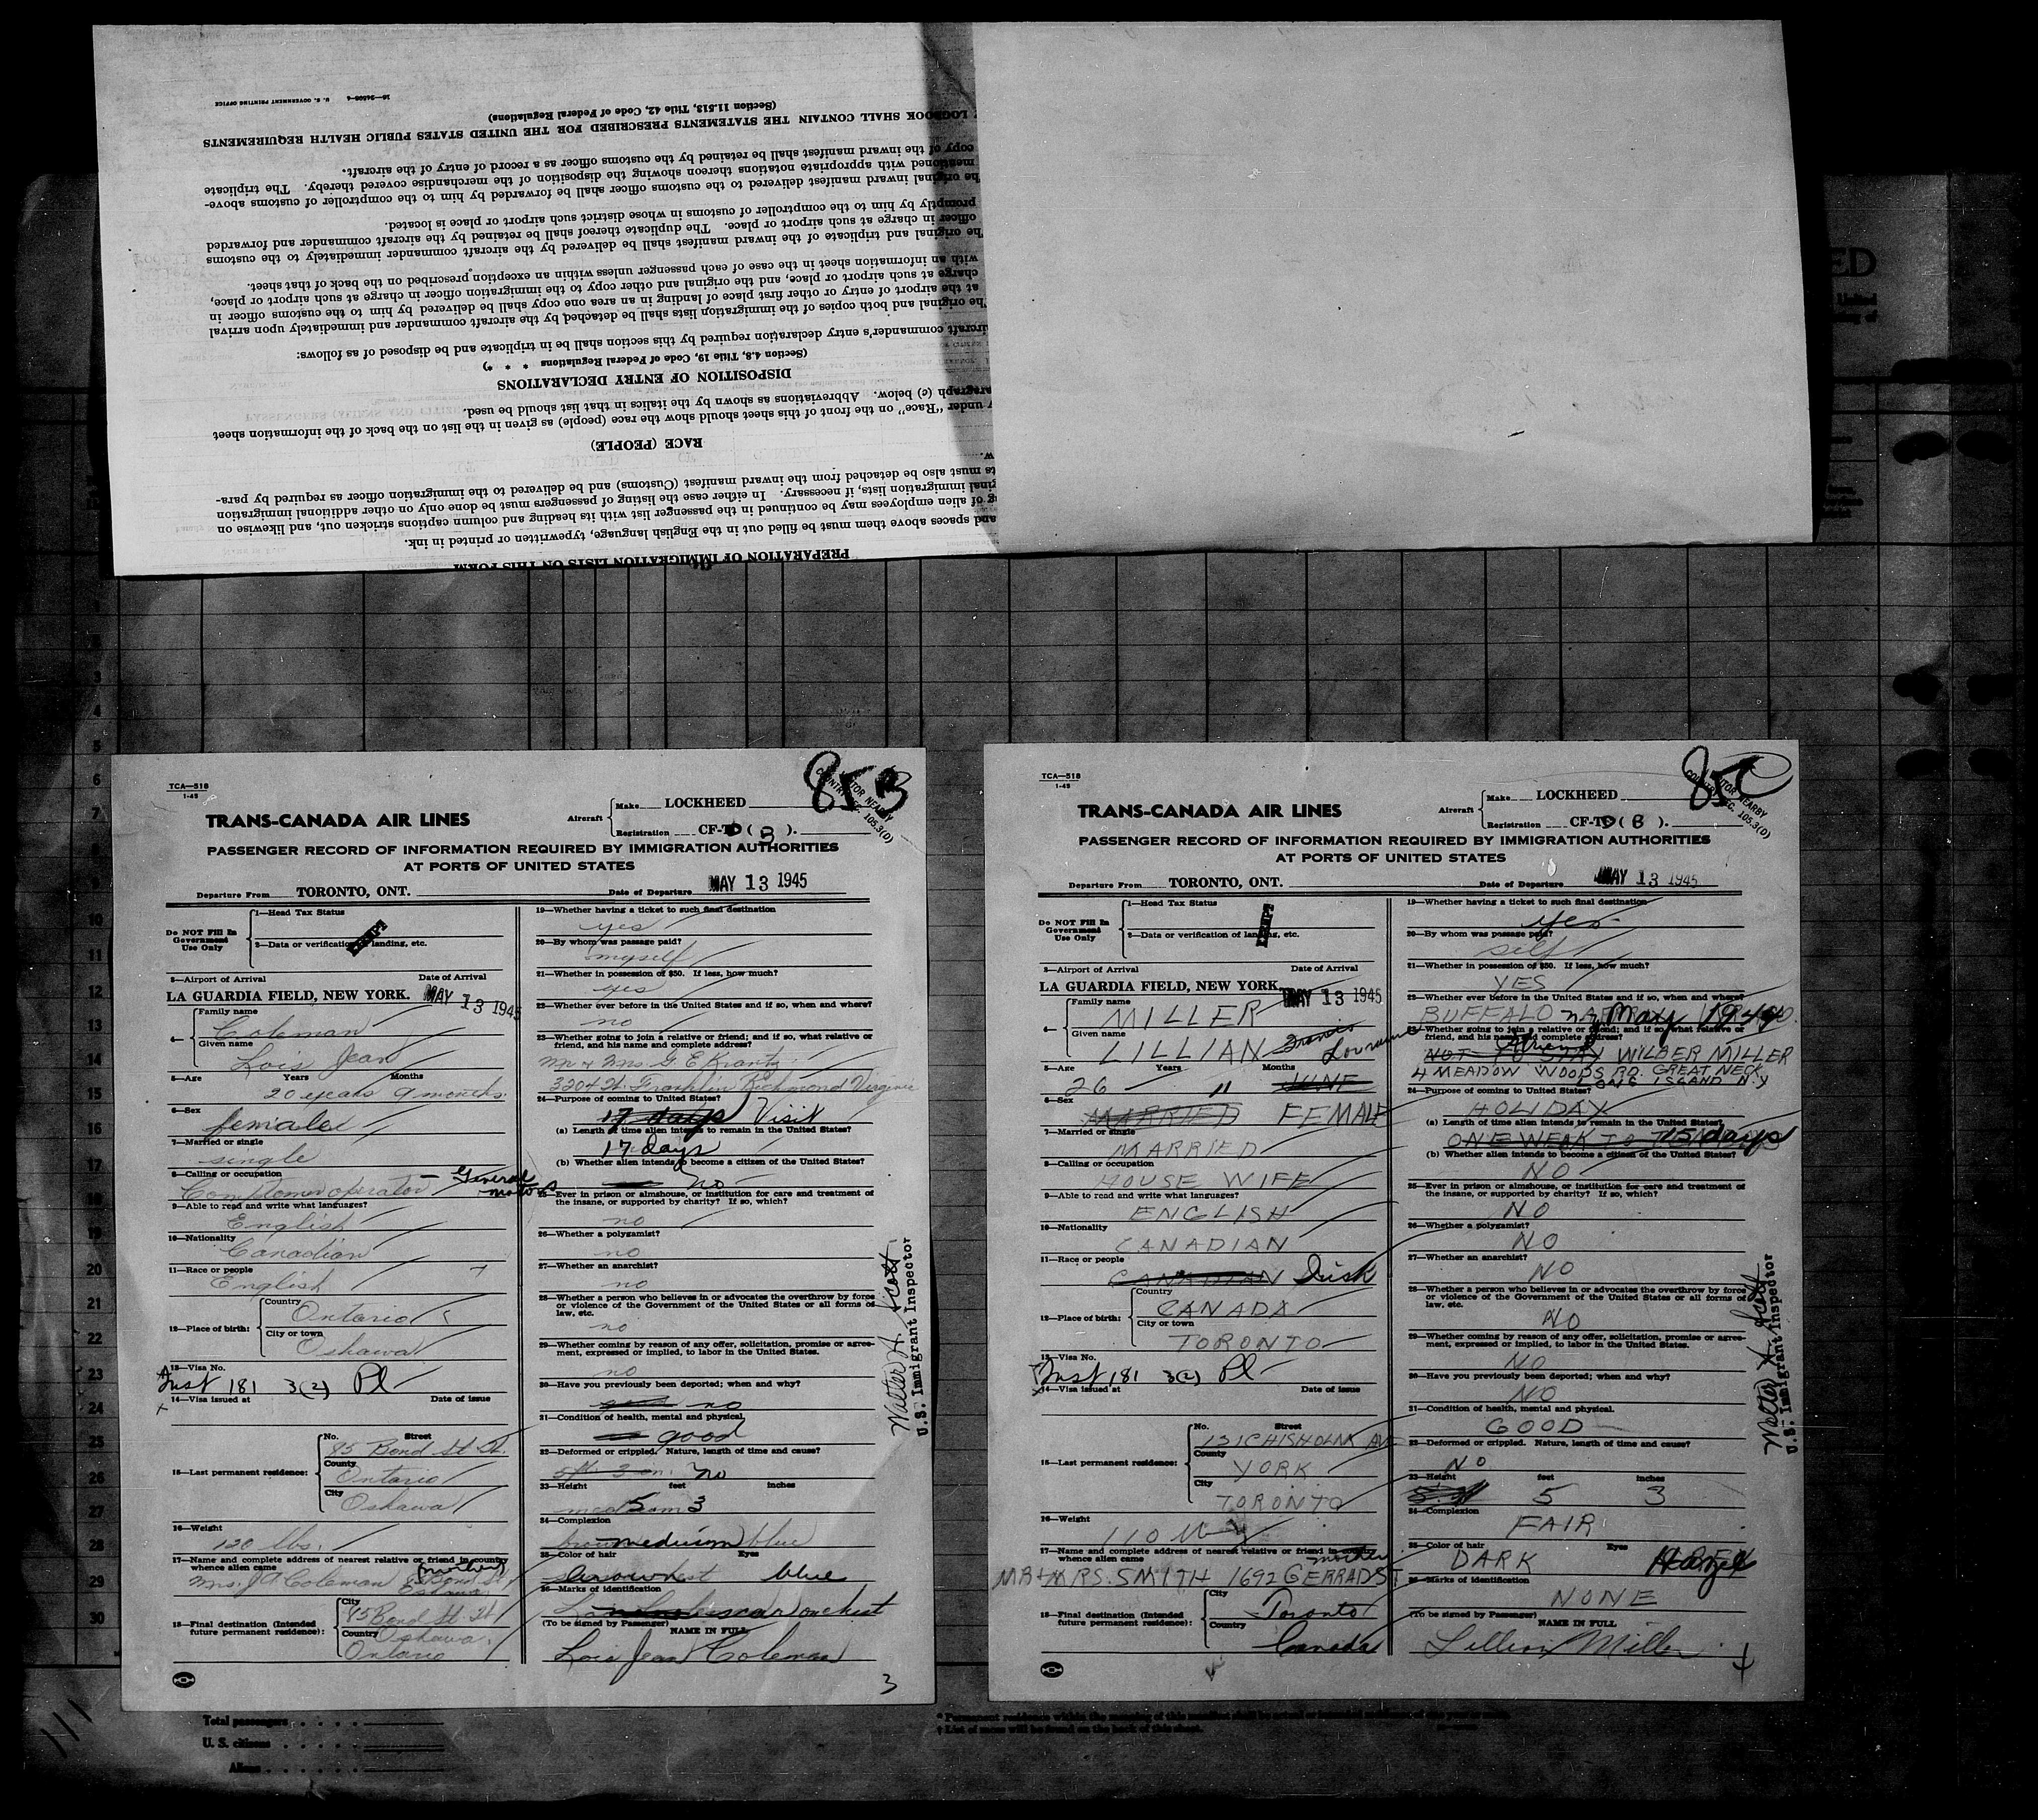 PREPARATION OF IMMIGRATION LISTS ON THIS FORM
and spaces above them must be filled out in the English language, typewritten or printed in ink.
of alien employees may be continued in the passenger list with its heading and column captions stricken out, and likewise on
immigration lists, if necessary. In either case the listing of passengers must be done only on other additional immigration
must also be detached from the inward manifest (Customs) and be delivered to the immigration officer as required by para-
RACE (PEOPLE)
under "Race" on the front of this sheet should show the race (people) as given in the list on the back of the information sheet
(c) below. Abbreviations as shown by the italics in that list should be used.
DISPOSITION OF ENTRY DECLARATIONS
(Section 4.8, Title 19, Code of Federal Regulations * * *)
aircraft commander's entry declaration required by this section shall be in triplicate and be disposed of as follows:
The original and both copies of the immigration lists shall be detached by the aircraft commander and immediately upon arrival
at the airport of entry or other first place of landing in an area one copy shall be delivered by him to the customs officer in
charge at such airport or place, and the original and other copy to the immigration officer in charge at such airport or place,
with an information sheet in the case of each passenger unless within an exception prescribed on the back of that sheet.
The original and triplicate of the inward manifest shall be delivered by the aircraft commander immediately to the customs
officer in charge at such airport or place. The duplicate thereof shall be retained by the aircraft commander and forwarded
promptly by him to the comptroller of customs in whose district such airport or place is located.
The original inward manifest delivered to the customs officer shall be forwarded by him to the comptroller of customs above-
mentioned with appropriate notations thereon showing the disposition of the merchandise covered thereby. The triplicate
copy of the inward manifest shall be retained by the customs officer as a record of entry of the aircraft.
LOGBOOK SHALL CONTAIN THE STATEMENTS PRESCRIBED FOR THE UNITED STATES PUBLIC HEALTH REQUIREMENTS
(Section 11.513, Title 42, Code of Federal Regulations)
U. S. GOVERNMENT PRINTING OFFICE
85B
TCA—518
1-45
TRANS-CANADA AIR LINES
Aircraft
Make LOCKHEED
Registration CF-T ( B ).
PASSENGER RECORD OF INFORMATION REQUIRED BY IMMIGRATION AUTHORITIES
AT PORTS OF UNITED STATES
Departure From TORONTO, ONT. Date of Departure MAY 13 1945
Do NOT Fill In Government Use Only
1—Head Tax Status
EXEMPT
2—Data or verification of landing, etc.
3—Airport of Arrival Date of Arrival
LA GUARDIA FIELD, NEW YORK. MAY 13 1945
4— Family name
Coleman
Given name
Lois Jean
5—Age Years Months
20 years 9 months
6—Sex
female
7—Married or single
single
8—Calling or occupation
Comptometer operator - General Motors
9—Able to read and write what languages?
English
10—Nationality
Canadian
11—Race or people
English
12—Place of birth: Country
Ontario
City or town
Oshawa
13—Visa No.
Inst 181 3(2) Pl
14—Visa issued at Date of issue
15—Last permanent residence: No. Street
95 Bond St. W.
County
Ontario
City
Oshawa
16—Weight
120 lbs.
17—Name and complete address of nearest relative or friend in country whence alien came
(mother)
Mrs. J A Coleman 95 Bond St. Oshawa
18—Final destination (Intended future permanent residence): City
95 Bond St. W
Oshawa
Country
Ontario
19—Whether having a ticket to such final destination
yes
20—By whom was passage paid?
myself
21—Whether in possession of $50. If less, how much?
yes
22—Whether ever before in the United States and if so, when and where?
no
23—Whether going to join a relative or friend; and if so, what relative or
friend, and his name and complete address?
Mr & Mrs. G E Krantz
3204 W. Franklin Richmond Virginia
24—Purpose of coming to United States?
17 days Visit
(a) Length of time alien intends to remain in the United States?
17 days
(b) Whether alien intends to become a citizen of the United States?
no
25—Ever in prison or almshouse, or institution for care and treatment of
the insane, or supported by charity? If so, which?
no
26—Whether a polygamist?
no
27—Whether an anarchist?
no
28—Whether a person who believes in or advocates the overthrow by force
or violence of the Government of the United States or all forms of
law, etc.
no
29—Whether coming by reason of any offer, solicitation, promise or agree-
ment, expressed or implied, to labor in the United States.
no
30—Have you previously been deported; when and why?
no
31—Condition of health, mental and physical.
good
32—Deformed or crippled. Nature, length of time and cause?
no
33—Height feet inches
5 3
34—Complexion
medium
35—Color of hair Eyes
brown blue
36—Marks of identification
scar on chest
(To be signed by Passenger) NAME IN FULL
Lois Jean Coleman
3
Walter H Scott
U.S. Immigrant Inspector
85C
TCA—518
1-45
TRANS-CANADA AIR LINES
Aircraft
Make LOCKHEED
Registration CF-T ( B ).
PASSENGER RECORD OF INFORMATION REQUIRED BY IMMIGRATION AUTHORITIES
AT PORTS OF UNITED STATES
Departure From TORONTO, ONT. Date of Departure MAY 13 1945
Do NOT Fill In Government Use Only
1—Head Tax Status
EXEMPT
2—Data or verification of landing, etc.
3—Airport of Arrival Date of Arrival
LA GUARDIA FIELD, NEW YORK. MAY 13 1945
4— Family name
MILLER
Given name
LILLIAN Lorraine
5—Age Years Months
26 11 JUNE
6—Sex
MARRIED FEMALE
7—Married or single
MARRIED
8—Calling or occupation
HOUSE WIFE
9—Able to read and write what languages?
ENGLISH
10—Nationality
CANADIAN
11—Race or people
CANADIAN Irish
12—Place of birth: Country
CANADA
City or town
TORONTO
13—Visa No.
Inst 181 3(2) Pl
14—Visa issued at Date of issue
15—Last permanent residence: No. Street
131 CHISHOLM AVE
County
YORK
City
TORONTO
16—Weight
110
17—Name and complete address of nearest relative or friend in country whence alien came
mother
MR & MRS. SMITH 1692 GERRAD ST
18—Final destination (Intended future permanent residence): City
Toronto
Country
Canada
19—Whether having a ticket to such final destination
yes
20—By whom was passage paid?
self
21—Whether in possession of $50. If less, how much?
YES
22—Whether ever before in the United States and if so, when and where?
BUFFALO N.Y. May 1944
23—Whether going to join a relative or friend; and if so, what relative or
friend, and his name and complete address?
NOT TO STAY friend WILBER MILLER
4 MEADOW WOODS RD. GREAT NECK
LONG ISLAND N.Y
24—Purpose of coming to United States?
HOLIDAY
(a) Length of time alien intends to remain in the United States?
ONE WEAK TO 15 days
(b) Whether alien intends to become a citizen of the United States?
NO
25—Ever in prison or almshouse, or institution for care and treatment of
the insane, or supported by charity? If so, which?
NO
26—Whether a polygamist?
NO
27—Whether an anarchist?
NO
28—Whether a person who believes in or advocates the overthrow by force
or violence of the Government of the United States or all forms of
law, etc.
NO
29—Whether coming by reason of any offer, solicitation, promise or agree-
ment, expressed or implied, to labor in the United States.
NO
30—Have you previously been deported; when and why?
NO
31—Condition of health, mental and physical.
GOOD
32—Deformed or crippled. Nature, length of time and cause?
NO
33—Height feet inches
5 3
34—Complexion
FAIR
35—Color of hair Eyes
DARK Hazel
36—Marks of identification
NONE
(To be signed by Passenger) NAME IN FULL
Lillian Miller
Walter H Scott
U.S. Immigrant Inspector
6
7
8
9
10
11
12
13
14
15
16
17
18
19
20
21
22
23
24
25
26
27
28
29
30
111
Total passengers
U. S. citizens
Aliens
† List of races will be found on the back of this sheet.